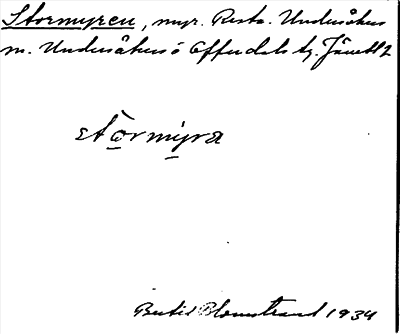 Stormyren, myr. Resta. Undersåkers
m. Undersåkers o Offerdals tg. Jämtl
stormyra
Bertil Blomstrand 1934